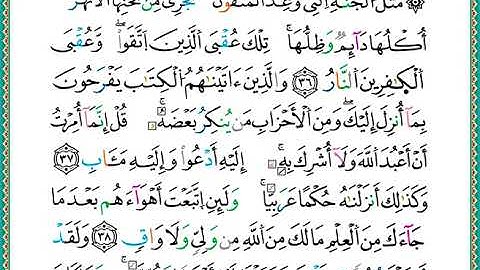 مَّثَلُ الْجَنَّةِ الَّتِى وُعِدَ الْمُتَّقُونَ تَجْرِى مِن تَحْتِهَا الْأَنْهَٰرُ
أُكُلُهَا دَآئِمٌ وَظِلُّهَا تِلْكَ عُقْبَى الَّذِينَ اتَّقَواْ وَّعُقْبَى
الْكَٰفِرِينَ النَّارُ ٣٦ وَالَّذِينَ ءَاتَيْنَٰهُمُ الْكِتَٰبَ يَفْرَحُونَ
بِمَآ أُنزِلَ إِلَيْكَ وَمِنَ الْأَحْزَابِ مَن يُنكِرُ بَعْضَهُۥ قُلْ إِنَّمَآ أُمِرْتُ
أَنْ أَعْبُدَ اللَّهَ وَلَآ أُشْرِكَ بِهِۦٓ إِلَيْهِ أَدْعُواْ وَإِلَيْهِ مَـَٔابِ ٣٧
وَكَذَٰلِكَ أَنزَلْنَٰهُ حُكْمًا عَرَبِيًّا وَلَئِنِ اتَّبَعْتَ أَهْوَآءَهُم بَعْدَ مَا
جَآءَكَ مِنَ الْعِلْمِ مَا لَكَ مِنَ اللَّهِ مِن وَلِىٍّ وَلَا وَاقٍ ٣٨ وَلَقَدْ